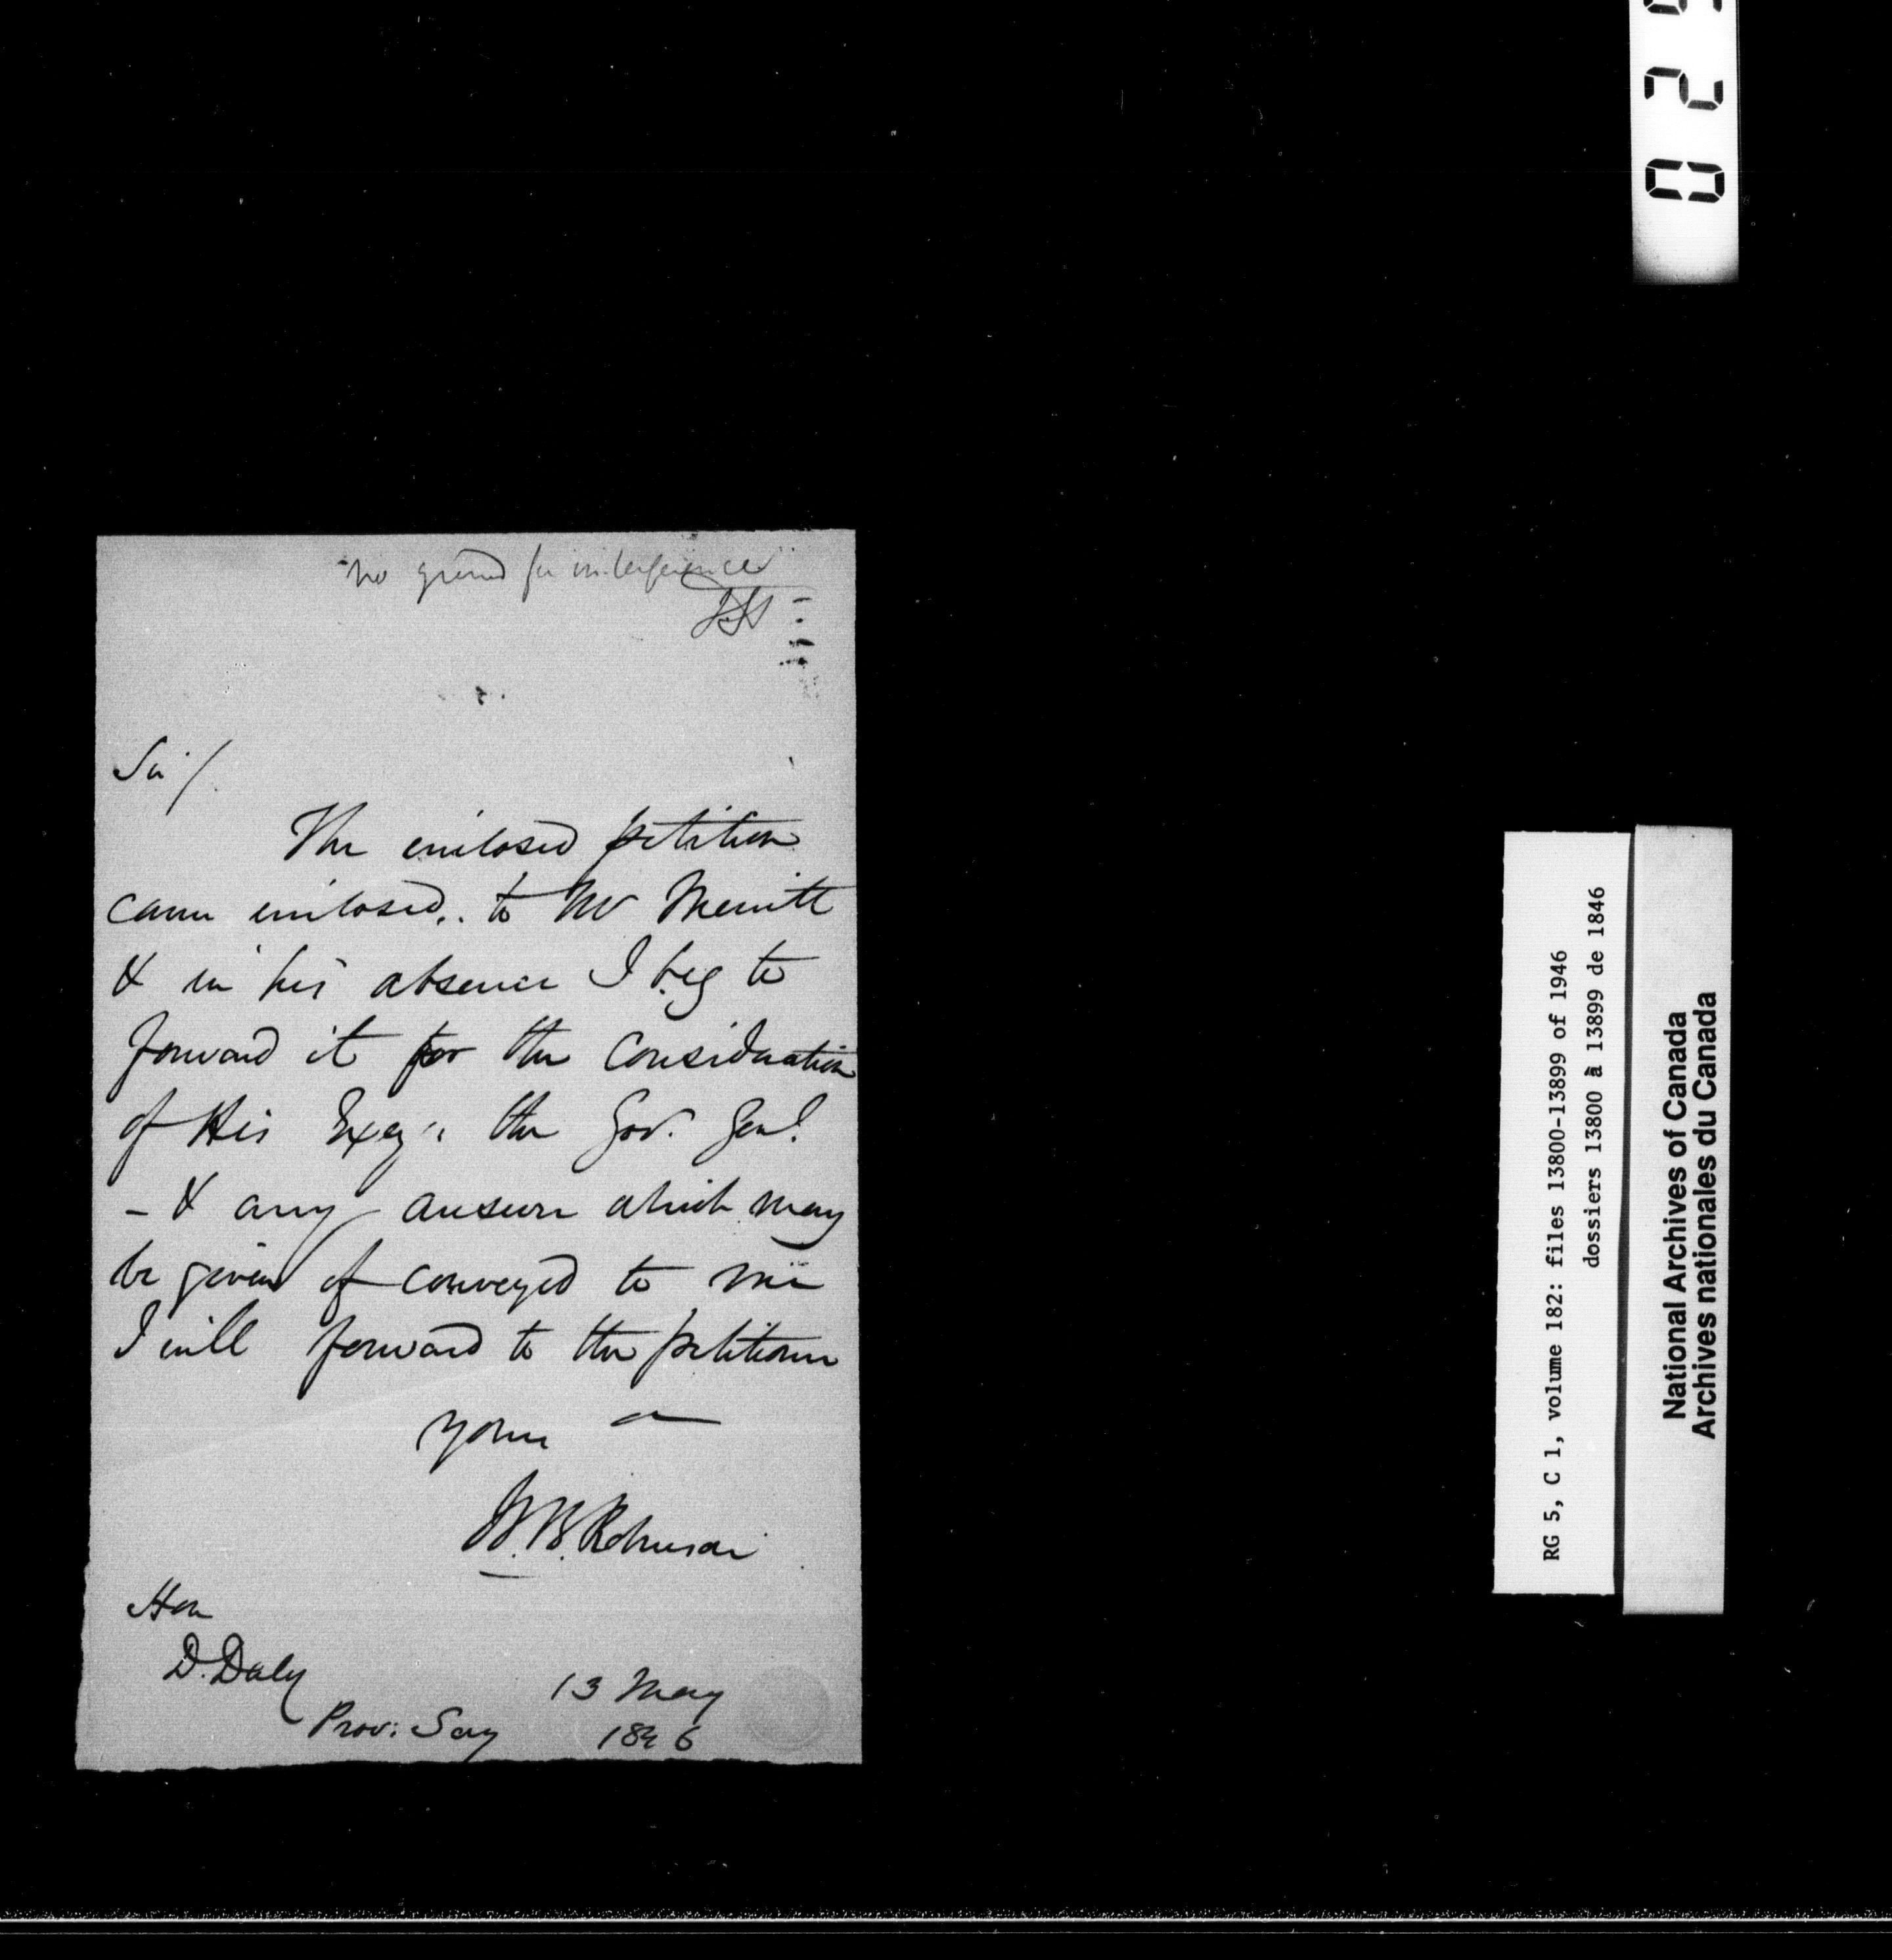 no ground for interference
Sir/
The enclosed petition
came enclosed.. to Mr Merritt
& in his absence I beg to
forward it for the consideration
of His Excy: the Gov. Genl.
- & any answer which may
be given if conveyed to me
I will forward to the petitioner
Yours
W. B. Robinson
Hon
D. Daly
Prov: Secy
13 May
1846
029
RG 5, C 1, volume 182: files 13800-13899 of 1946
dossiers 13800 à 13899 de 1846
National Archives of Canada
Archives nationales du Canada